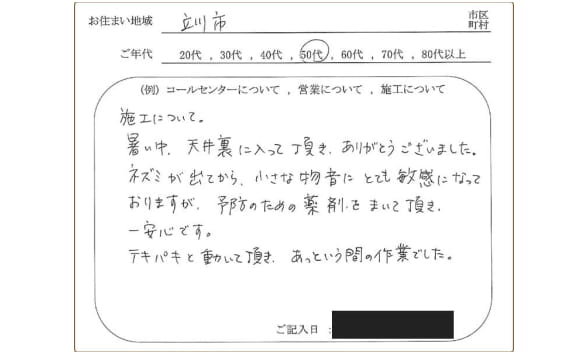 お住まい地域 立川市 市区
町村
ご年代 20代 , 30代 , 40代 , 50代 , 60代 , 70代 , 80代以上
(例) コールセンターについて , 営業について , 施工について
施工について。
暑い中、天井裏に入って頂き、ありがとうございました。
ネズミが出てから、小さな物音にとても敏感になって
おりますが、予防のための薬剤をまいて頂き、
一安心です。
テキパキと動いて頂き、あっという間の作業でした。
ご記入日 :